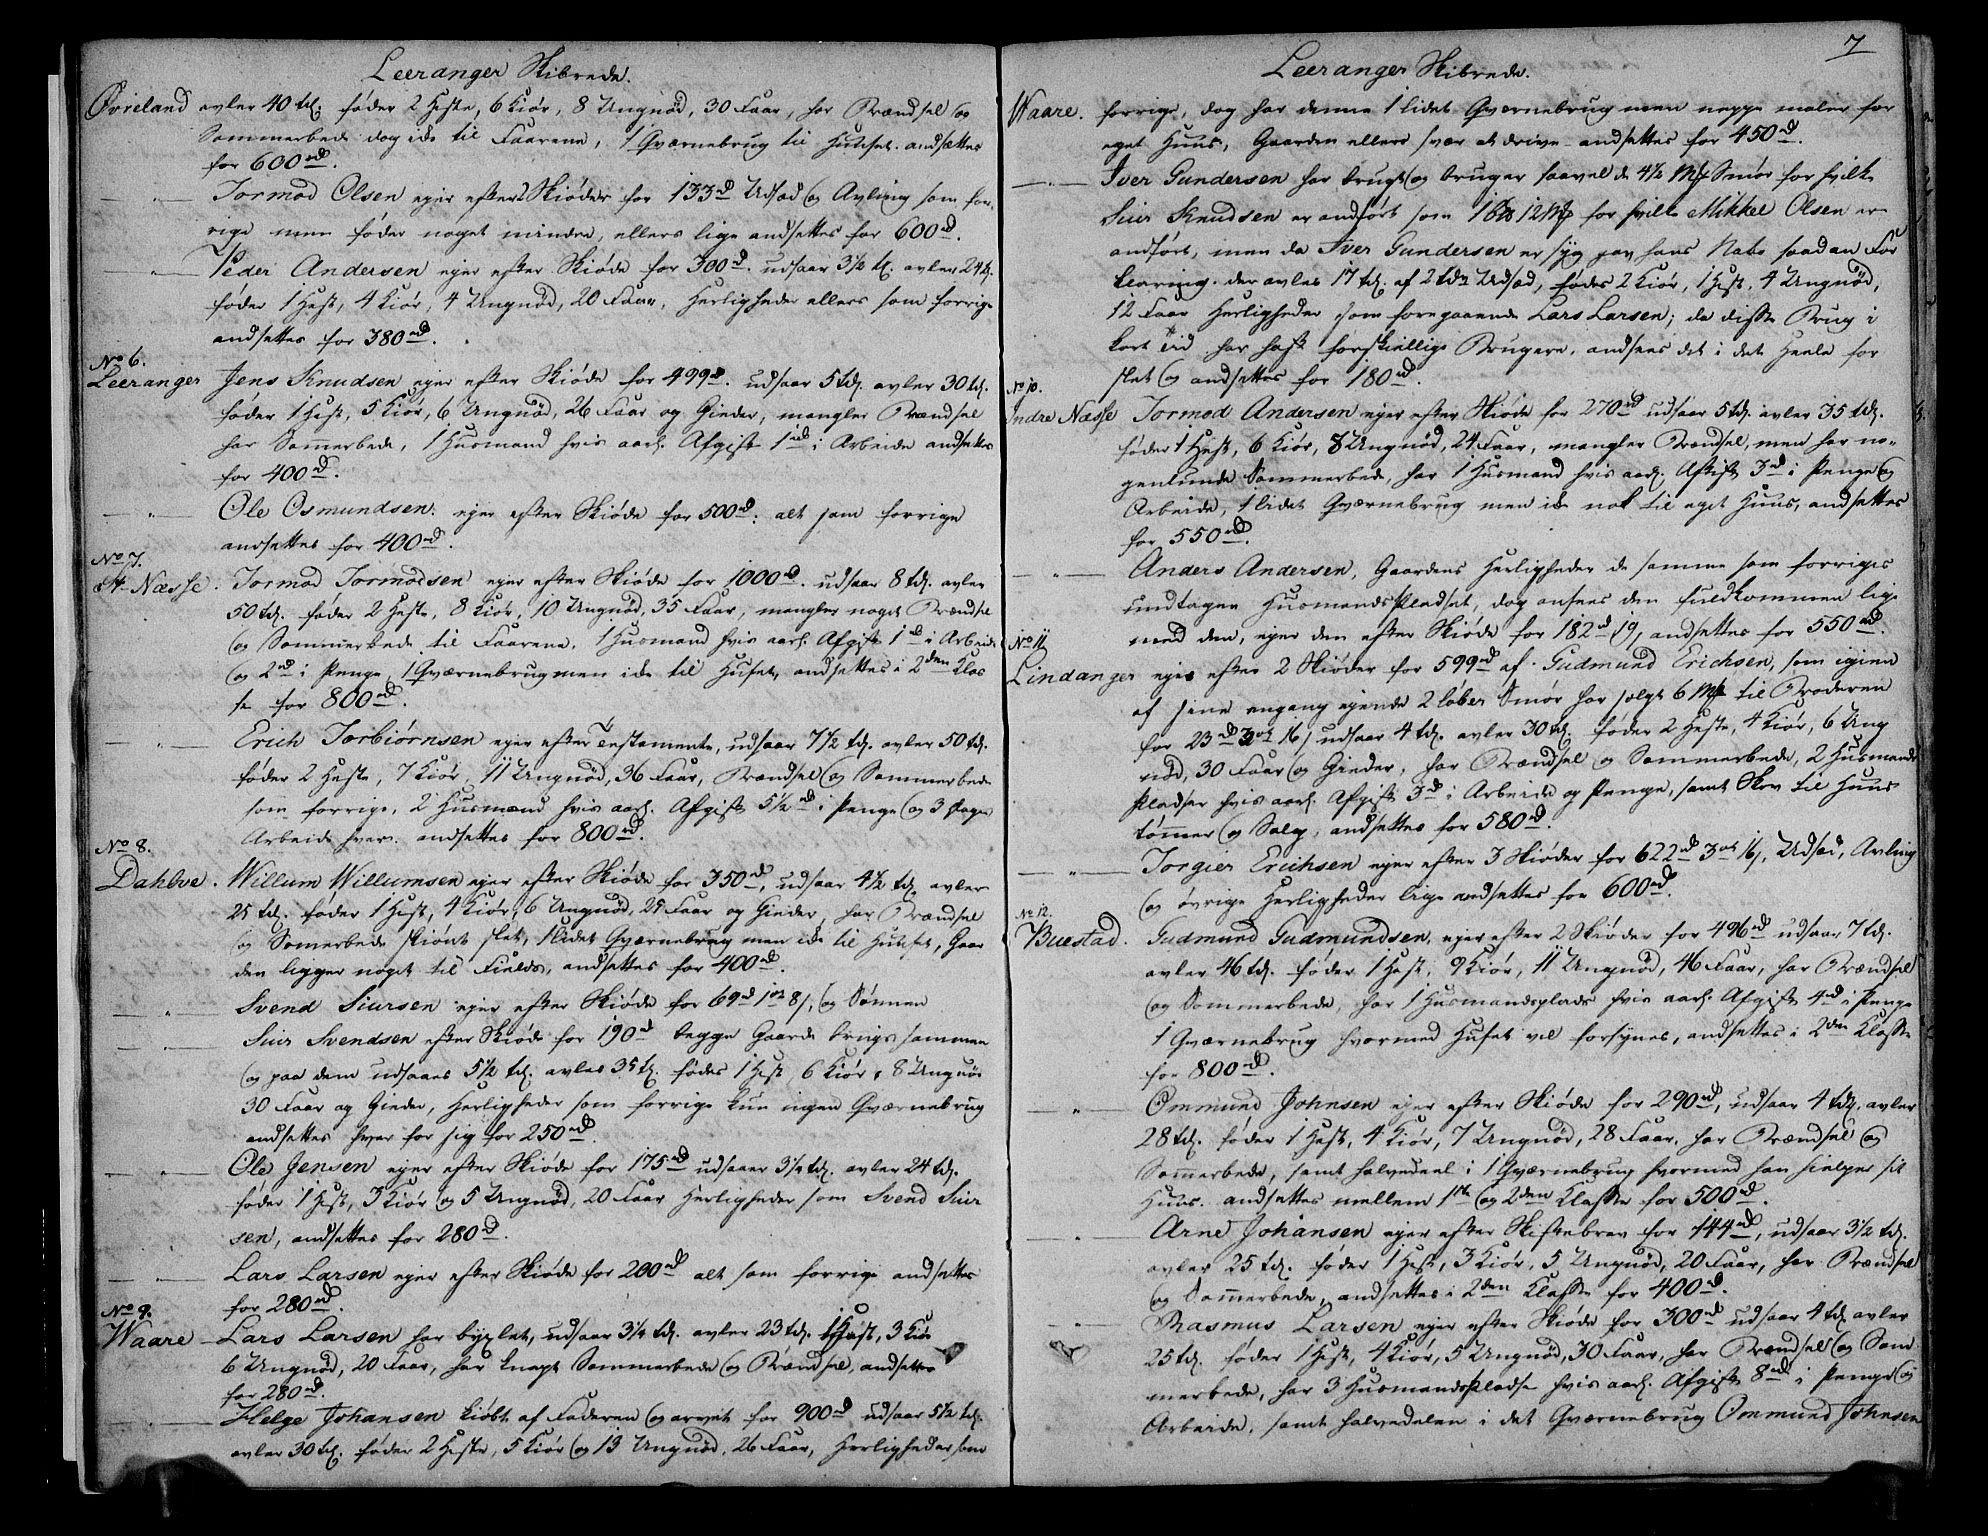 Leeranger Skibrede.
Øvreland avler 40 td. føder 2 Heste, 6 Kiør, 8 Ungnød, 30 Faar, har Brændsel og
Sommerbede dog ide til Faarene, 1 Qværnebrug til Huuset. andsættes
for 600rd.
Tormod Olsen ejer efter Skiøde for 133rd Udsæd og Avling som for-
rige men føder noget mindre, ellers lige andsettes for 600rd.
Peder Andersen ejer efter Skiøde for 300rd. udsaar 3½ td. avler 24 td.
føder 1 Hest, 4 Kiør, 4 Ungnød, 20 Faar, Herligheder ellers som forrige
andsettes for 380rd.
No 6.
Leeranger Jens Knudsen ejer efter Skiøde for 499rd. udsaar 5 td. avler 30 td.
føder 1 Hest, 5 Kiør, 6 Ungnød, 26 Faar og Gieder, mangler Brændsel
har Sommerbede, 1 Husmand hvis aarl. Afgift 1rd i Arbeide andsettes
for 400rd.
Ole Osmundsen. ejer efter Skiøde for 500rd. alt som forrige
andsettes for 400rd.
No 7.
Næsse. Tormod Tormodsen ejer efter Skiøde for 1000rd. udsaar 8 td. avler
50 td. føder 2 Heste, 8 Kiør, 10 Ungnød, 35 Faar, mangler noget Brændsel
og Sommerbede til Faarene, 1 Husmand hvis aarl. Afgift 1rd i Arbeide
og 2rd i Penge, 1 Qværnebrug men ide til Huset, andsettes i 2den Klas
se for 800rd.
Erich Torbiørnsen ejer efter Testamente, udsaar 7½ td. avler 50 td.
føder 2 Heste, 7 Kiør, 11 Ungnød, 36 Faar, Brændsel og Sommerbede
som forrige, 2 Husmænd hvis aarl. Afgift 5½rd i Penge og 3 Dages
Arbeide hver. andsettes for 800rd.
No 8.
Dahlve. Willum Willumsen ejer efter Skiøde for 350rd, udsaar 4½ td. avler
25 td. føder 1 Hest, 4 Kiør, 6 Ungnød, 25 Faar og Gieder, har Brændsel
og Somerbede skiønt slet, 1 lidet Qværnebrug men ide til Huuset, Gaar
den ligger noget til Fields, andsettes for 400rd.
Svend Siursen ejer efter Skiøde for 69rd 1ort 8s, og Sønnen
Siur Svendsen efter Skiøde for 190rd begge Gaarde brugs sammen
og paa dem udsaaes 5½ td. avles 35 td. fødes 1 Hest, 6 Kiør, 8 Ungnød
30 Faar og Gieder, Herligheder som forrige kun ingen Qværnebrug
andsettes hver for sig for 250rd.
Ole Jensen ejer efter Skiøde for 175rd udsaaer 3¼ td. avler 24 td.
føder 1 Hest, 3 Kiør og 5 Ungnød, 20 Faar Herligheder som Svend Siur
sen, andsettes for 280rd.
Lars Larsen ejer efter Skiøde for 200rd alt som forrige andsettes
for 280rd.
No 9.
Waare Lars Larsen har byxlet, udsaar 3¼ td. avler 23 td. 1 Hest, 3 Kiør
6 Ungnød, 20 Faar, har knapt Sommerbede og Brændsel, andsettes
for 280rd.
Helge Johansen kiøbt af Faderen og arvet for 900rd udsaar 5½ td.
avler 30 td. føder 2 Heste, 5 Kiør og 13 Ungnød, 26 Faar, Herligheder som
7
Leeranger Skibrede.
Waare. forrige, dog har denne 1 lidet Qværnebrug men neppe maler for
eget Huus, Gaarden ellers svær at drive andsettes for 450rd.
Iver Gundersen har brugt og bruger saavel de 4½ Mk Smør for hvilke
Siur Knudsen er andført som 1 12 Mk for hvilke Mikkel Olsen er
andført, men da Iver Gundersen er syg gav hans Nabo saadan For
klaring. der avles 17 td. af 2 tdr Udsæd, fødes 2 Kiør, 1 Hest, 4 Ungnød,
12 Faar Herligheder som foregaaende Lars Larsen; da disse Brug i
kort Tid har haft forskiellige Brugere, andsees det i det Heele for
slet og andsettes for 180rd.
No 10.
Indre Næsse Tormod Andersen ejer efter Skiøde for 270rd udsaar 5 td. avler 35 td.
føder 1 Hest, 6 Kiør, 8 Ungnød, 24 Faar, mangler Brændsel, men har no-
genlunde Sommerbede, har 1 Husmand hvis aarl. Afgift 3rd i Penge og
Arbeide, 1 lidet Qværnebrug men ide nok til eget Huus, andsettes
for 550rd.
Anders Andersen, Gaardens Herligheder de samme som forriges
undtagen Husmands Pladset, dog ansees den fuldkommen lige
med den, ejer den efter Skiøde for 182rd 19, andsettes for 550rd.
No 11
Lindanger ejes efter 2 Skiøder for 599rd af Gudmund Erichsen, som igien
af sine engang ejende 2 løber Smør har solgt 6 Mk til Broderen
for 23rd 3ort 16s udsaar 4 td. avler 30 td. føder 2 Heste, 4 Kiør, 6 Ung
nød, 30 Faar og Gieder, har Brændsel og Sommerbede, 2 Husmands
Pladser hvis aarl. Afgift 3rd i Arbeide og Penge, samt Skov til Huus
tømmer og Salg, andsettes for 580rd.
Torgier Erichsen ejer efter 3 Skiøder for 622rd 3ort 16s, Udsæd, Avling
og øvrige Herligheder lige andsettes for 600rd.
No 12.
Buestad. Gudmund Gudmundsen, ejer efter 2 Skiøder for 496rd udsaar 7 td.
avler 46 td. føder 1 Hest, 9 Kiør, 11 Ungnød, 46 Faar, har Brændsel
og Sommerbede, har 1 Husmandsplads hvis aarl. Afgift 4rd i Penge
1 Qværnebrug hvormed Huset vel forsynes, andsettes i 2den Klasse
for 800rd.
Ommund Johnsen ejer efter Skiøde for 290rd, udsaar 4 td. avler
28 td. føder 1 Hest, 4 Kiør, 7 Ungnød, 28 Faar, har Brændsel og
Sommerbede, samt halvedeel i 1 Qværnebrug hvormed han hielper sit
Huus. andsettes mellem 1ste og 2den Klasse for 500rd.
Arne Johansen ejer efter Skiftebrev for 144rd, udsaar 3½ td.
avler 25 td. føder 1 Hest, 3 Kiør, 5 Ungnød, 20 Faar, har Brændsel
og Sommerbede, andsettes i 2den Klasse for 400rd.
Rasmus Larsen ejer efter Skiøde for 300rd udsaar 4 td avler
25 td. føder 1 Hest, 4 Kiør, 5 Ungnød, 30 Faar, har Brændsel og Som
merbede, har 3 Husmandspladse hvis aarl. Afgift 8rd i Penge og
Arbeide, samt halvedelen i det Qværnebrug Ommund Johnsen